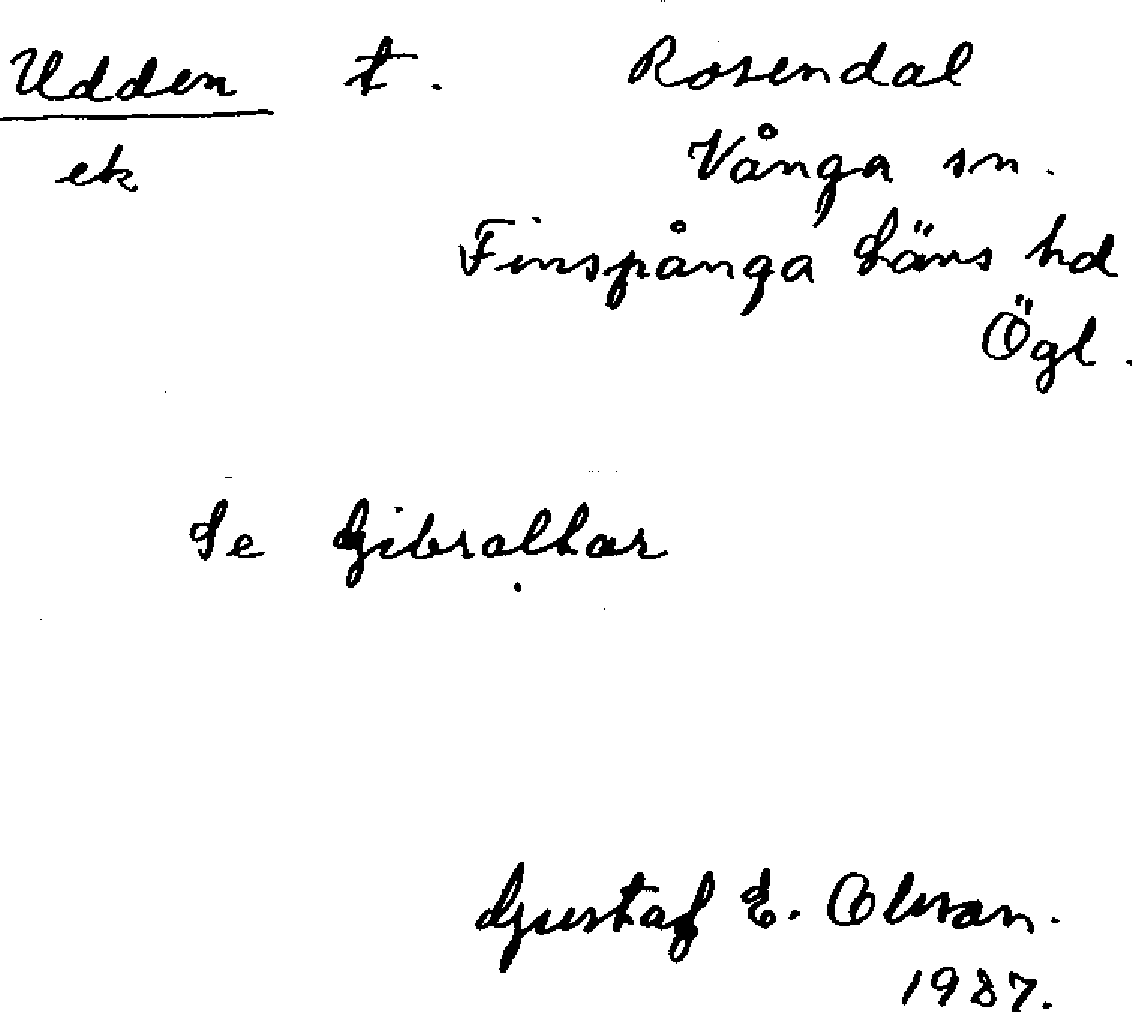 Udden t. Rosendal
ek Vånga sn.
Finspånga läns hd
Ögl.
Se Gibraltar
Gustaf E. Olsson.
1937.